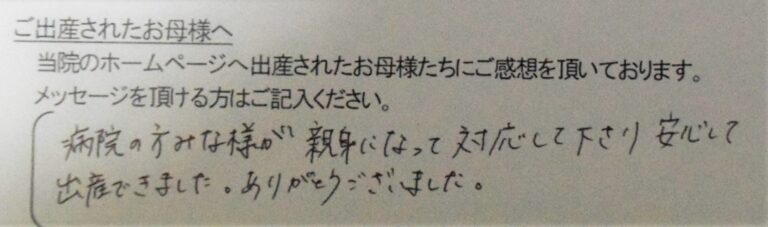 ご出産されたお母様へ
当院のホームページへ出産されたお母様たちにご感想を頂いております。
メッセージを頂ける方はご記入ください。
病院の方みな様が親身になって対応して下さり安心して
出産できました。ありがとうございました。